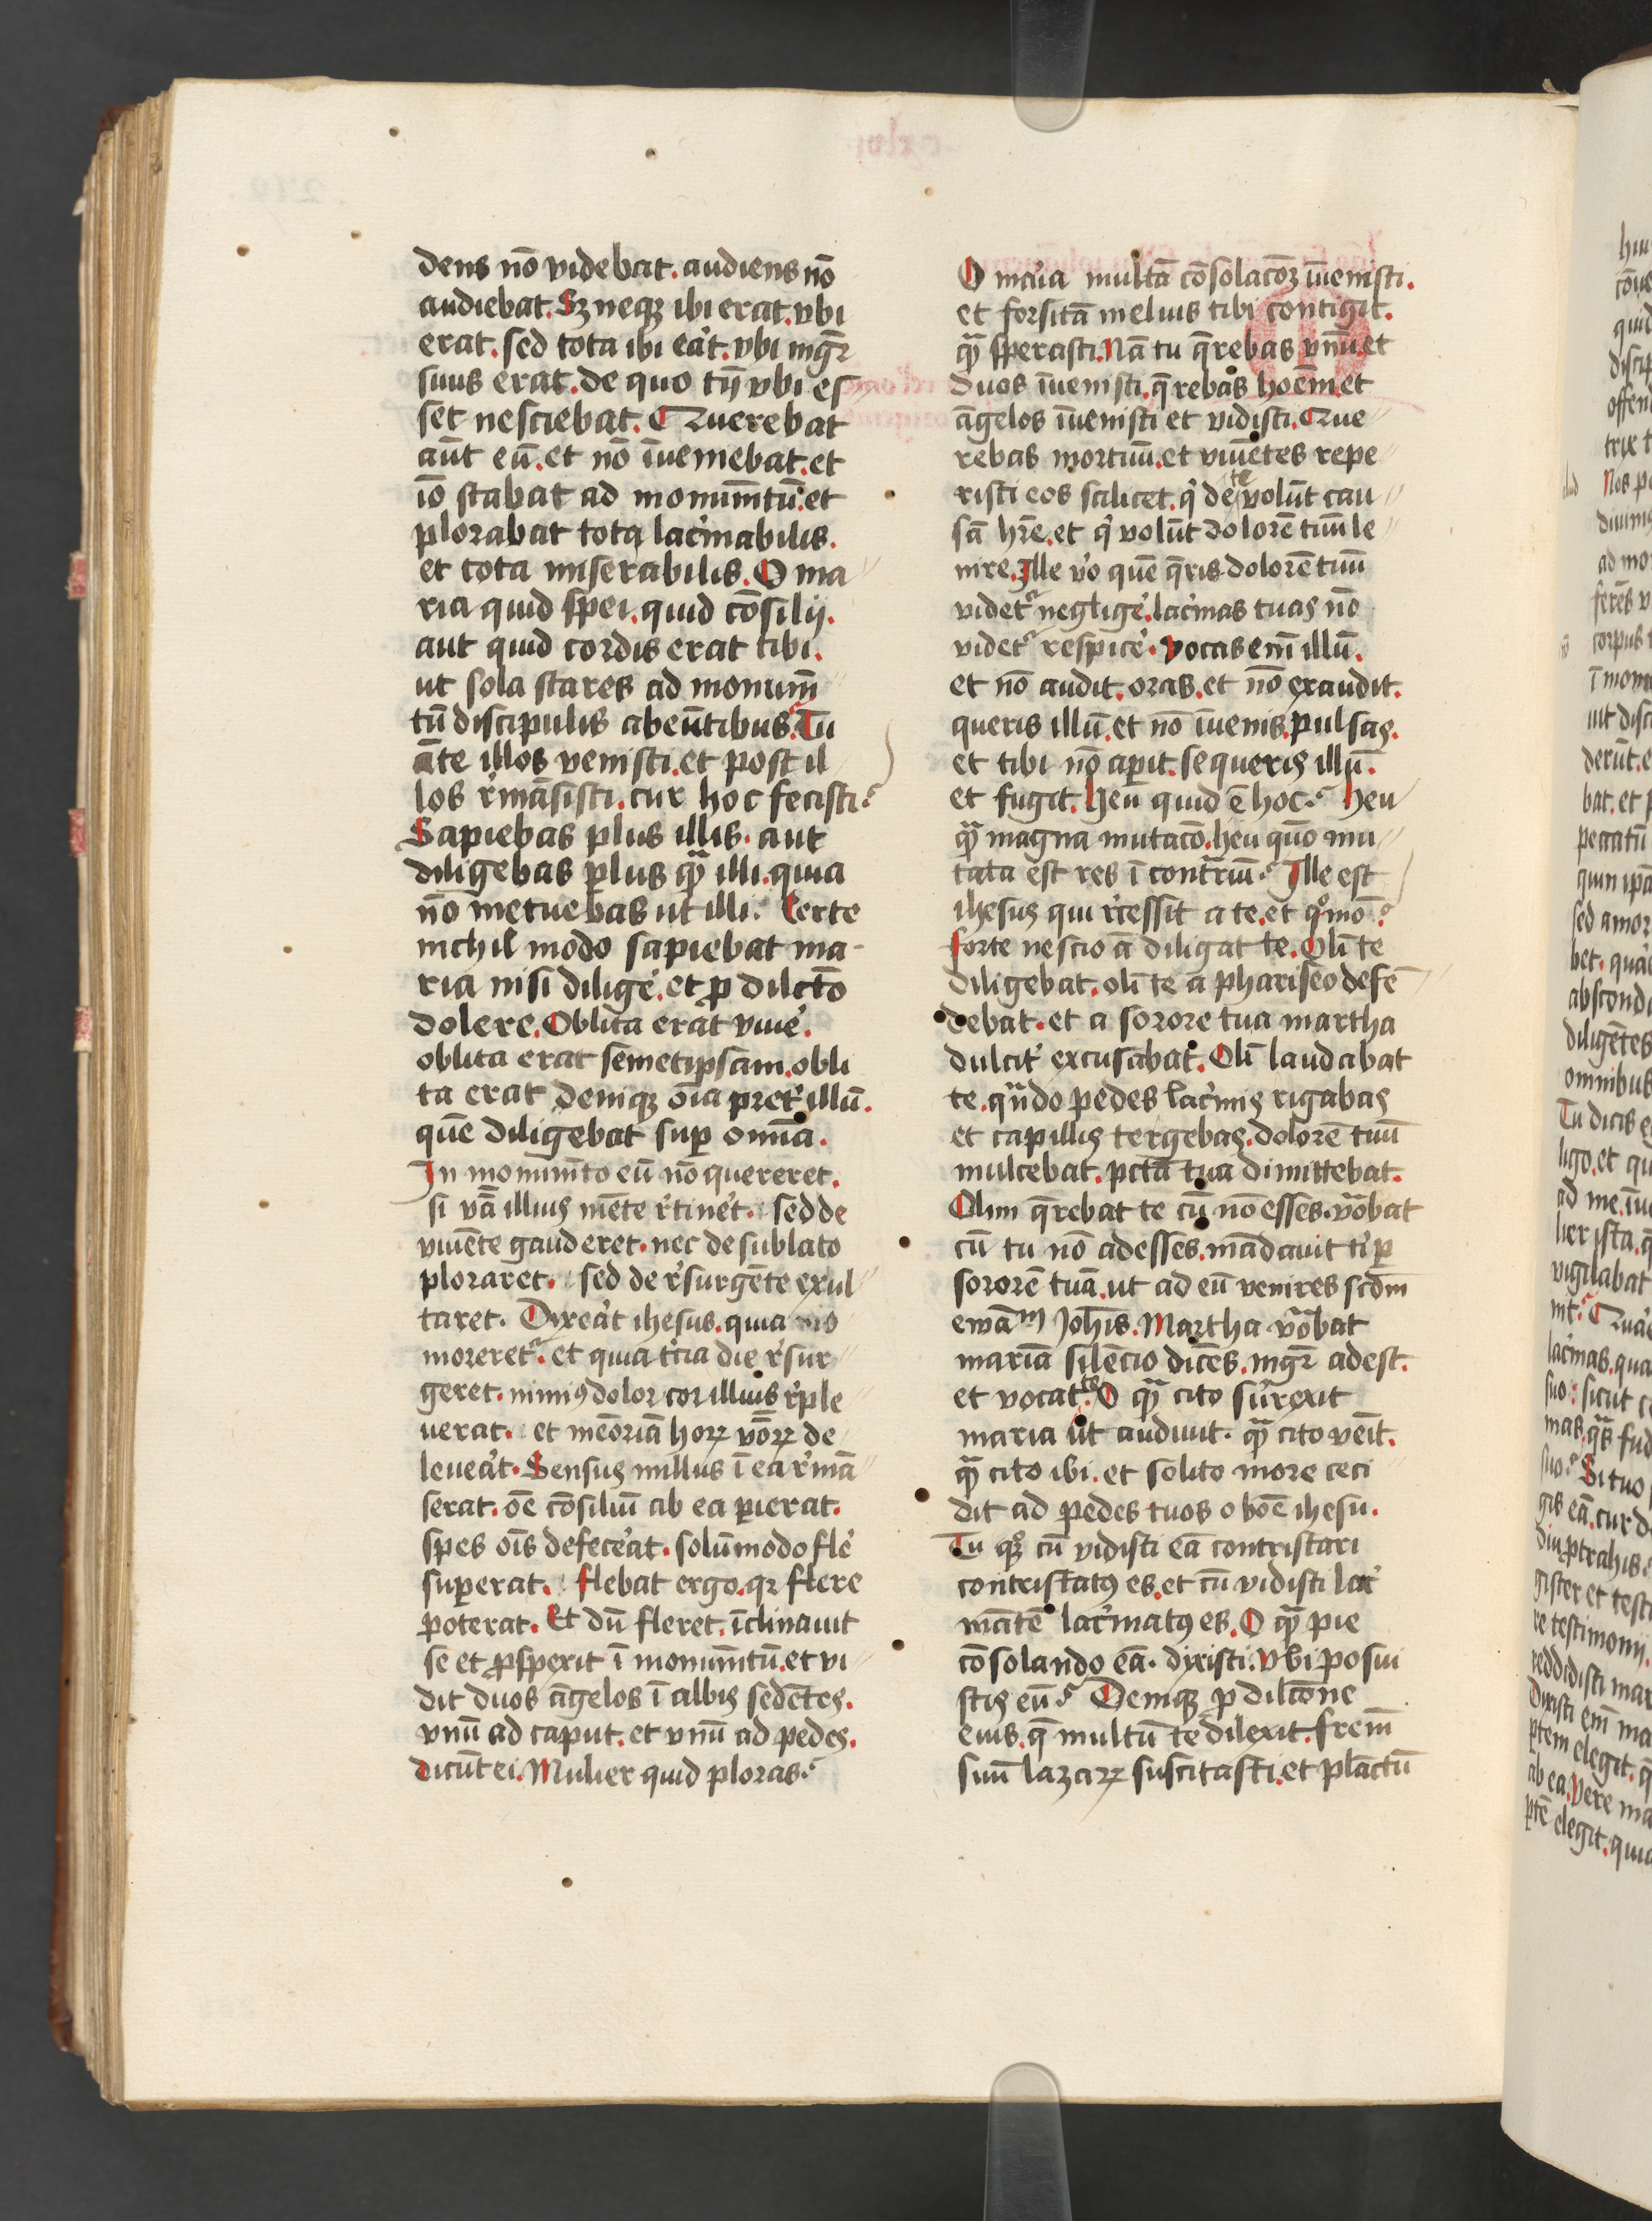 dens nō videbat. audiens nō
audiebat. Sꝫ neqꝫ ibi erat. vbi
erat. sed tota ibi eāt. vbi mgr̄
suus erat. de quo tn̄ vbi es
set nesciebat. Querebat
aūt eū. et nō īueniebat. et
iō stabat ad monumtū. et
plorabat tota lac̓mabilis.
et tota miserabilis. O ma
ria quid spei. quid cōsilij.
aut quid cordis erat tibi.
ut sola stares ad monum̄
tū discipulis abeūtibus. Tu
āte illos venisti. et post il
los r̓māsisti. cur hoc fecisti?
Sapiebas plus illis. aut
diligebas plus qᷓ illi. quia
nō metuebas ut illi? Certe
nichil modo sapiebat ma
ria nisi dilige̓. et ꝓ dilcto
dolere. Oblita erat viue̓.
oblita erat semetipsam. obli
ta erat deniqꝫ oīa pret̓ illū.
quē diligebat suꝑ omīa.
In monumto eū nō quereret.
si vā illius mēte r̓tine̓t. sed de
viuēte gauderet. nec de sublato
ploraret. sed de r̓surgēte exul
taret. Dixeāt ihesus. quia mo
morereť. et quia t̓cia die r̓sur
geret. nimiꝰ dolor cor illius r̓ple
uerat. et meōriā hoꝝ vōꝝ de
leueāt. Sensus nullus ī ea r̓mā
serat. oē cōsiliū ab ea ꝑierat.
spes oīs defeceāt. solūmodo fle̓
suꝑerat. flebat ergo. qꝛ flere
poterat. Et dū fleret. īclinauit
se et ꝓspexit ī monumtū. et vi
dit duos āgelos ī albis sedētes.
vnū ad caput. et vnū ad pedes.
dicūt ei. Mulier quid ploras?
O mar̓ia multā cōsolacōꝫ īuenisti.
et forsitā melius tibi contigit.
qᷓ sperasti. Nā tu q̄rebas vnū. et
duos īuenisti. q̄rebas hoēm. et
āgelos īuenisti et vidisti. Que
rebas mortuū. et viuētes repe
risti eos scilicet. q̓ de te volūt cau
sā hr̄e. et q̓ volūt dolorē tuū le
nire. Ille v̓o quē q̄ris dolorē tuū
videť neglige̓. lac̓mas tuas nō
videť respice̓. vocas em̄ illū.
et nō audit. oras. et nō exaudit.
queris illū. et nō īuenis. pulsas.
et tibi nō aꝑit. sequeris illū.
et fugit. Heu quid ē hoc? Heu
qᷓ magna mutacō. heu quō mu
tata est res ī contrīū? Ille est
ihesus qui r̓cessit a te. et qͦmō?
forte nescio ā diligat te. Olī te
diligebat. olī te a phariseo defē
debat. et a sorore tua martha
dulcit̓ excusabat. Olī laudabat
te. qn̄do pedes lac̓mis rigabas
et capillis tergebas. dolorē tuū
mulcebat. pctā tua dimittebat.
Olim q̄rebat te cū nō esses. voᷓbat
cū tu nō adesses. mādauit ti ꝑ
sororē tuā. ut ad eū venires scd̄m
ewāᵐ Joh̄is. Martha voᷓbat
mariā silēcio dicēs. mgr̄ adest.
et vocat te. O qᷓ cito surrexit
maria ut audiuit. qᷓ cito venīt.
qᷓ cito ibi. et solito more ceci
dit ad pedes tuos o boē ihesu.
Tu qꝫ cū vidisti eā contristari
contristatꝰ es. et cū vidisti lac̓
mātē lac̓matꝰ es. O qᷓ pie
cōsolando eā. dixisti. vbi posui
stis eū? Deniqꝫ ꝓ dilcōne
eius. q̄ multū te dilexit. frem̄
suū lazaꝝ suscitasti. et plāctū